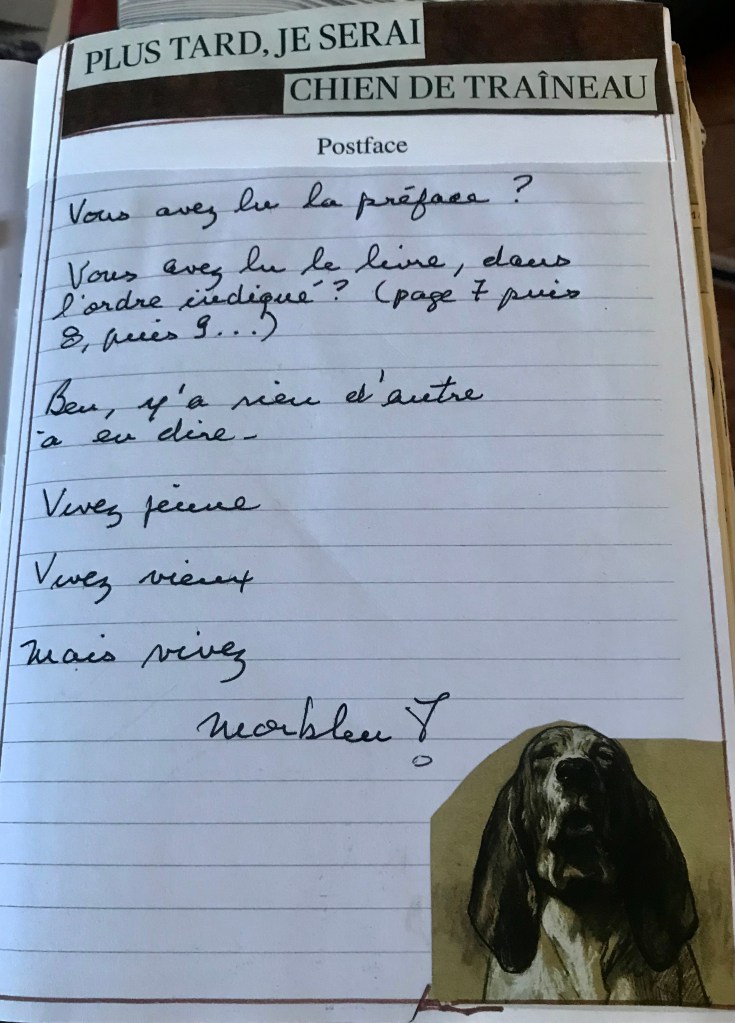 PLUS TARD, JE SERAI
CHIEN DE TRAÎNEAU
Postface
Vous avez lu la préface ?
Vous avez lu le livre, dans
l'ordre indiqué ? (page 7 puis
8, puis 9...)
Ben, y'a rien d'autre
à en dire -
Vivez jeune
Vivez vieux
mais vivez
morbleu !